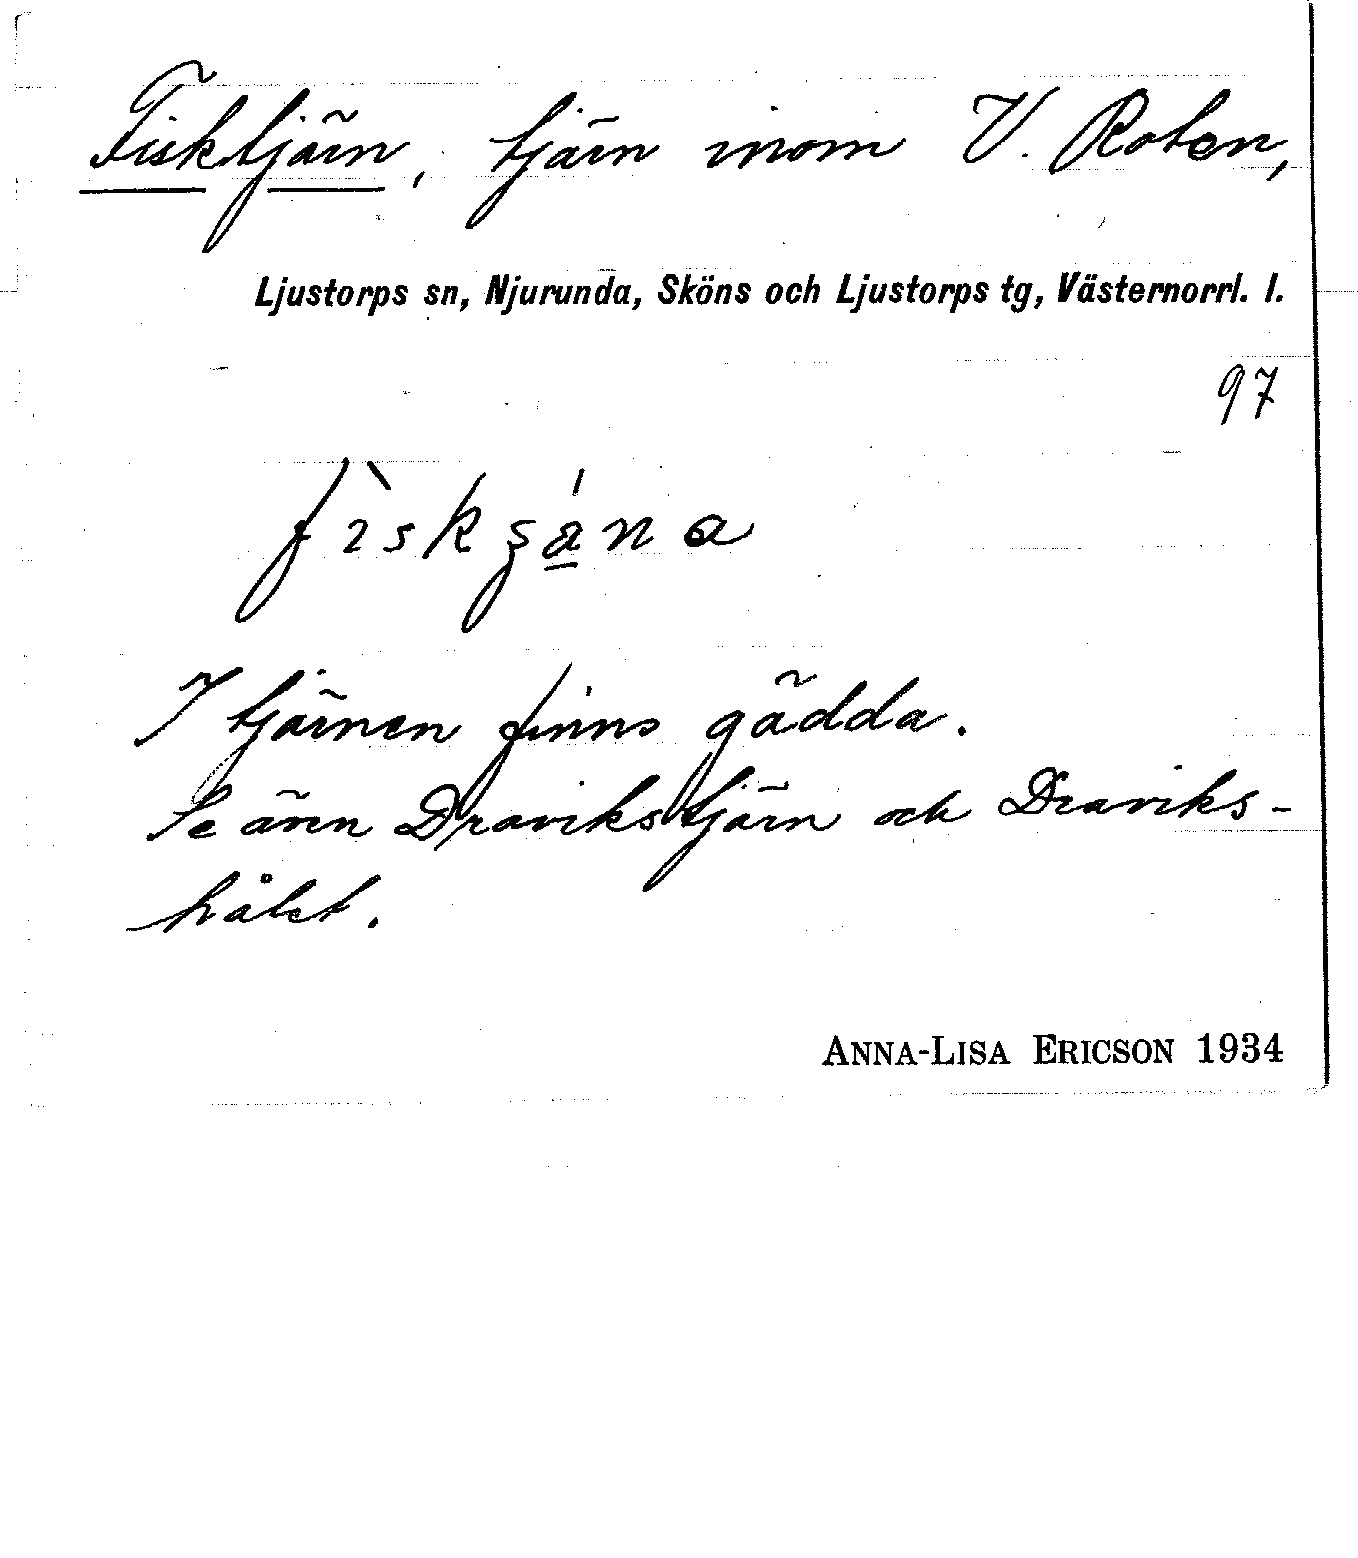 Fisktjärn, tjärn inom V. Roten,
Ljustorps sn, Njurunda, Sköns och Ljustorps tg, Västernorrl. l.
97
I tjärnen finns gädda.
Se även Dravikstjärn och Draviks-
hålet.
ANNA-LISA ERICSON 1934